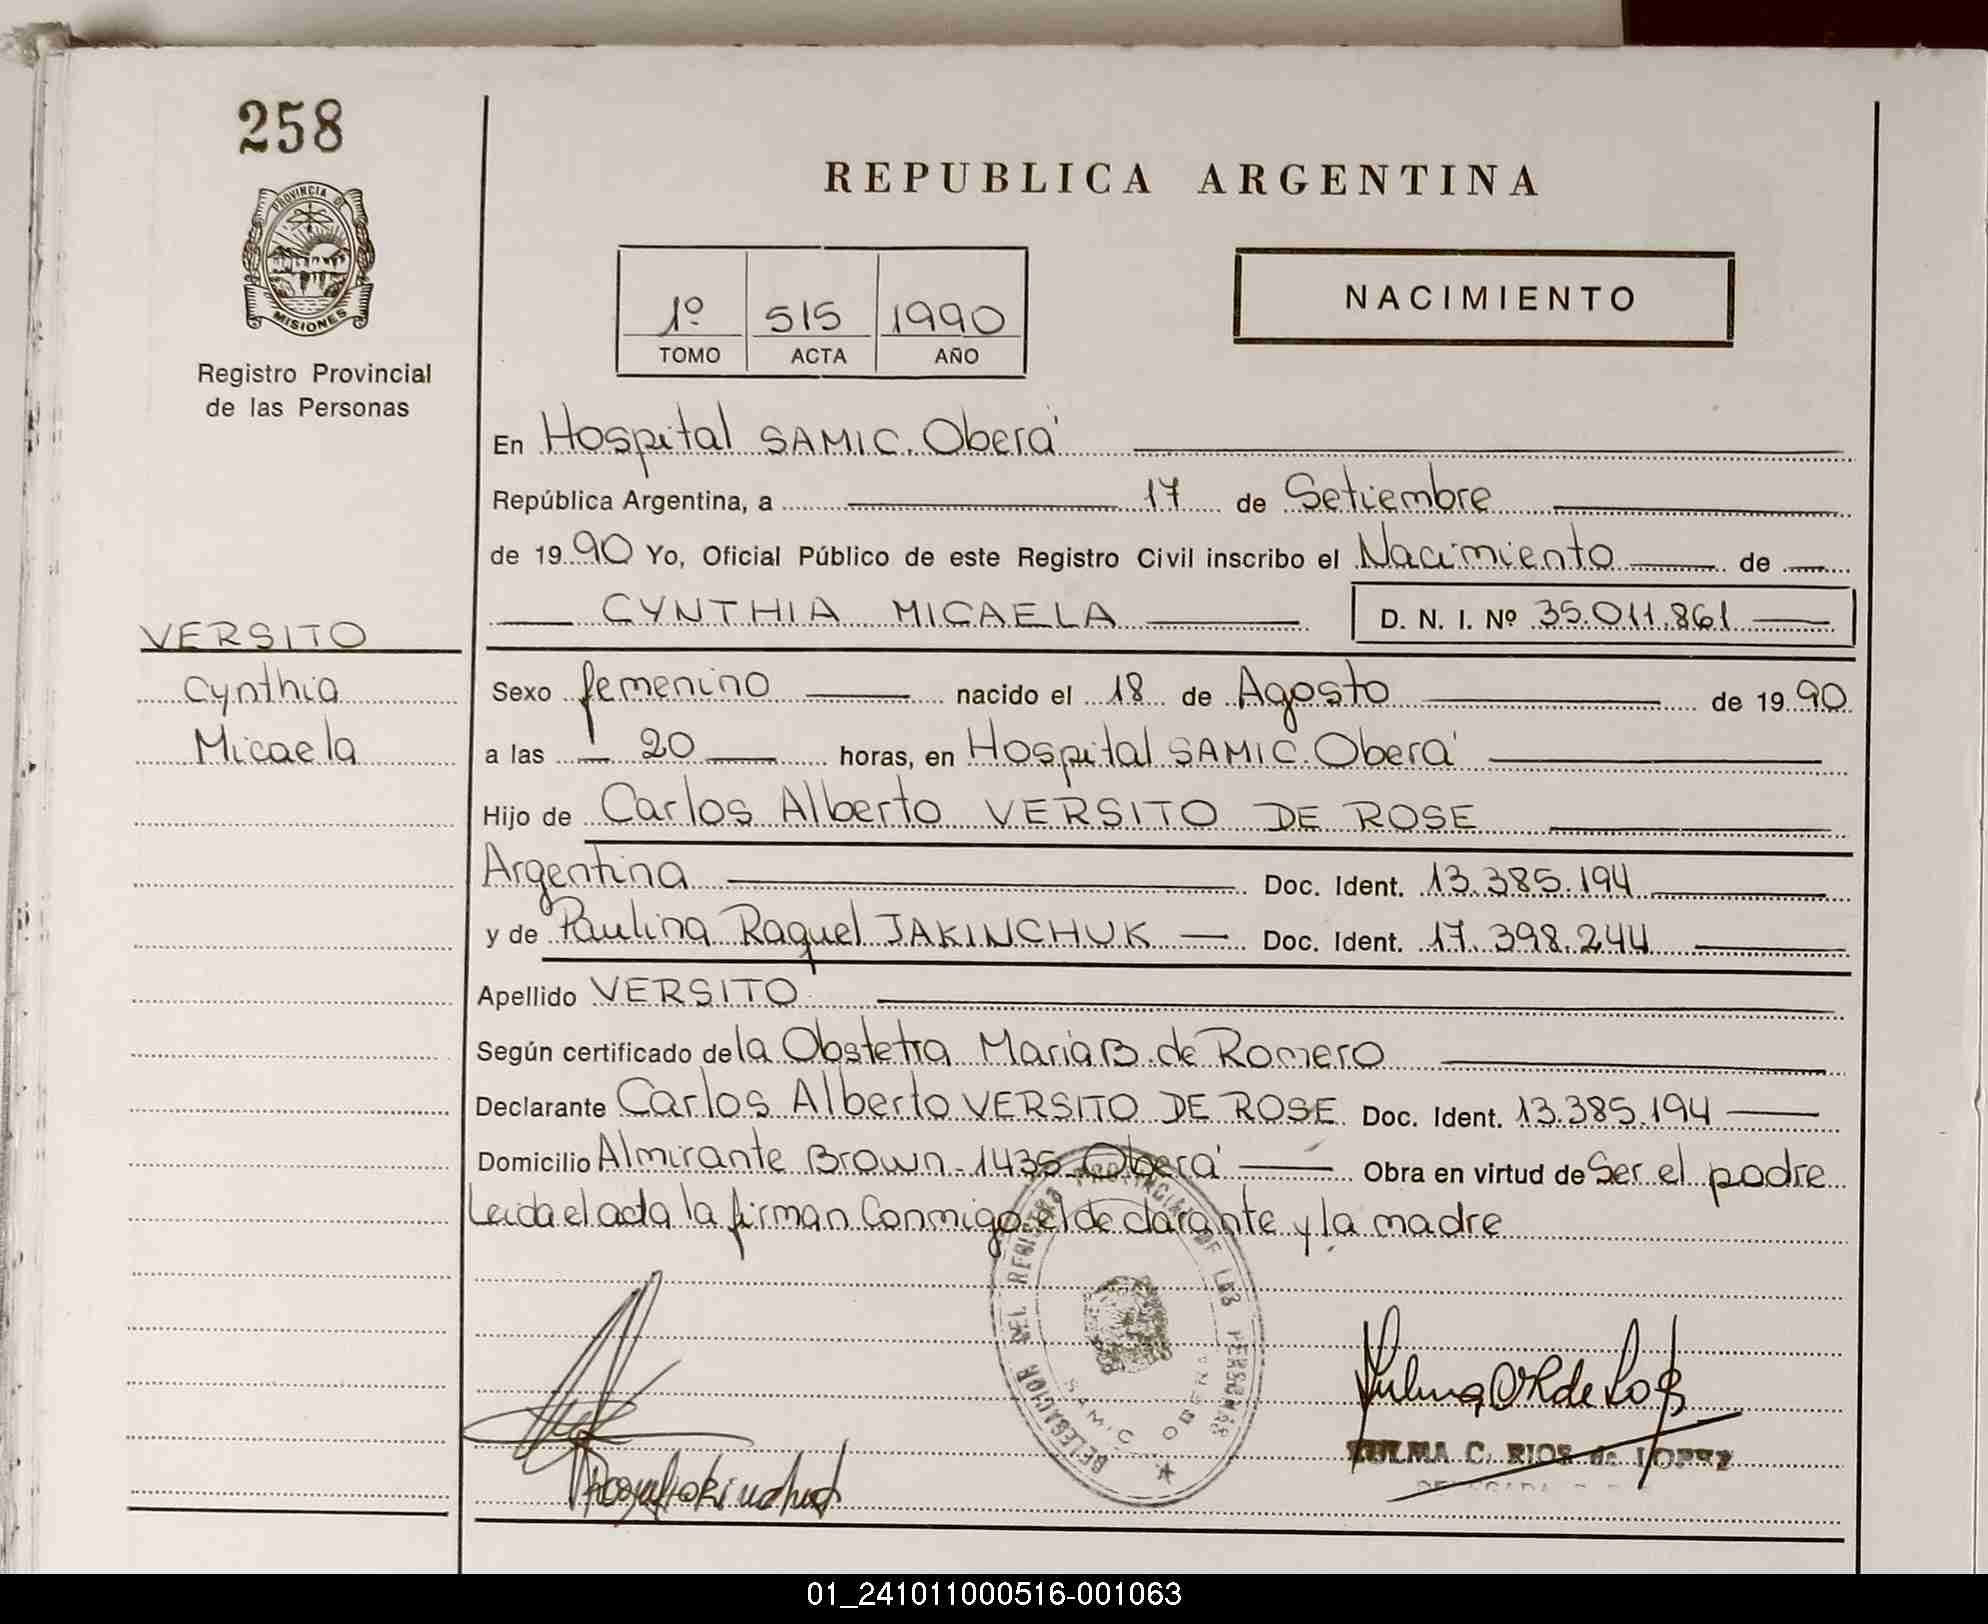 258
PROVINCIA DE
MISIONES
Registro Provincial
de las Personas
REPUBLICA ARGENTINA
1º 515 1990
TOMO ACTA AÑO
NACIMIENTO
En Hospital SAMIC. Oberá
República Argentina, a 17 de Setiembre
de 1990 Yo, Oficial Público de este Registro Civil inscribo el Nacimiento de
CYNTHIA MICAELA D. N. I. Nº 35.011.861
VERSITO
Cynthia
Micaela
Sexo femenino nacido el 18 de Agosto de 1990
a las 20 horas, en Hospital SAMIC. Oberá
Hijo de Carlos Alberto VERSITO DE ROSE
Argentina Doc. Ident. 13.385.194
y de Paulina Raquel JAKINCHUK Doc. Ident. 17.398.244
Apellido VERSITO
Según certificado de la Obstetra Maria B. de Romero
Declarante Carlos Alberto VERSITO DE ROSE Doc. Ident. 13.385.194
Domicilio Almirante Brown-1435-Oberá Obra en virtud de Ser el padre
Leida el acta la firman Conmigo el declarante y la madre
DEL REGISTRO PROVINCIAL DE LAS PERSONAS
SAMIC OBERA
ZULMA C. RIOS de LOPEZ
01_241011000516-001063